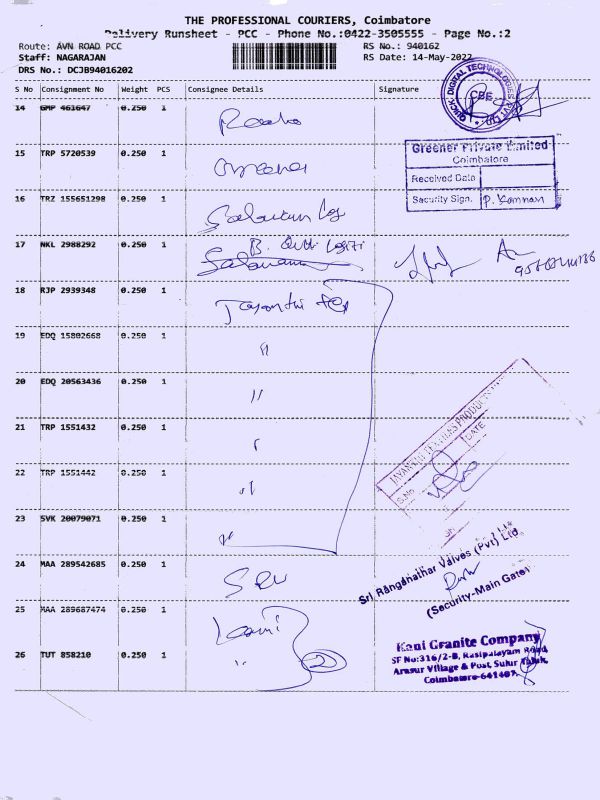 THE PROFESSIONAL COURIERS, Coimbatore
Delivery Runsheet - PCC - Phone No.:0422-3505555 - Page No.:2
Route: AVN ROAD PCC
RS No.: 940162
Staff: NAGARAJAN
RS Date: 14-May-2022
DRS No.: DCJB94016202
S No Consignment No Weight PCS Consignee Details Signature
14 GMP 461647 0.250 1
QUICK DIGITAL TECHNOLOGIES PVT LTD
CBE
15 TRP 5720539 0.250 1
Greener Private Limited
Coimbatore
Received Date
Security Sign. P. Kannan
16 TRZ 155651298 0.250 1
17 NKL 2988292 0.250 1
18 RJP 2939348 0.250 1 Jayanthi Tex
19 EDQ 15802668 0.250 1 "
20 EDQ 20563436 0.250 1 "
21 TRP 1551432 0.250 1 "
22 TRP 1551442 0.250 1 "
23 SVK 20079071 0.250 1 "
JAYANTHI TEXTILES PRODUCTS
S.No
DATE
24 MAA 289542685 0.250 1 SRV
Sri Ranganathar Valves (Pvt) Ltd.
(Security-Main Gate)
25 MAA 289687474 0.250 1
26 TUT 858210 0.250 1 " 2
Kani Granite Company
SF No:316/2-B, Rasipalayam Road,
Arasur Village & Post, Sulur Taluk,
Coimbatore-641407.